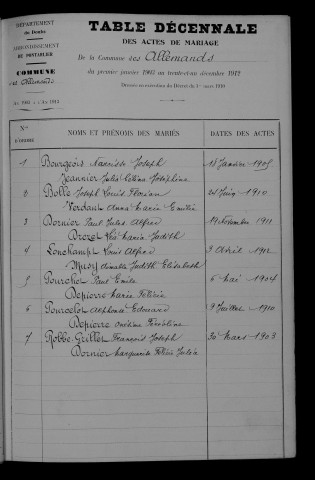 DÉPARTEMENT
du Doubs
ARRONDISSEMENT
DE PONTARLIER
COMMUNE
des Allemands
TABLE DÉCENNALE
DES ACTES DE MARIAGE
De la Commune des Allemands
du premier janvier 1903 au trente-et-un décembre 1912
Dressée en exécution du Décret du
Nos
D'ORDRE
NOMS ET PRÉNOMS DES MARIÉS
DATES DES ACTES
1 Bourgeois Narcisse Joseph Janvier 1905
Jeannier Julie Joséphine
2 Bolle Joseph Louis Florian Juin 1910
Verdant Anna Marie Emilie
3 Dornier Paul Jules Alfred 1911
Drezet Marie Judith
4 Lonchampt Louis Alfred Avril
Judith Elisabeth
5 Pourchet Paul Emile 6 Mai 1904
Depierre Marie Félicie
6 Pourcelot Alphonse Edouard Juillet 1910
Depierre
7 Robbe-Grillet François Joseph 30 Mars 1903
Dornier Marguerite Félicie Julia